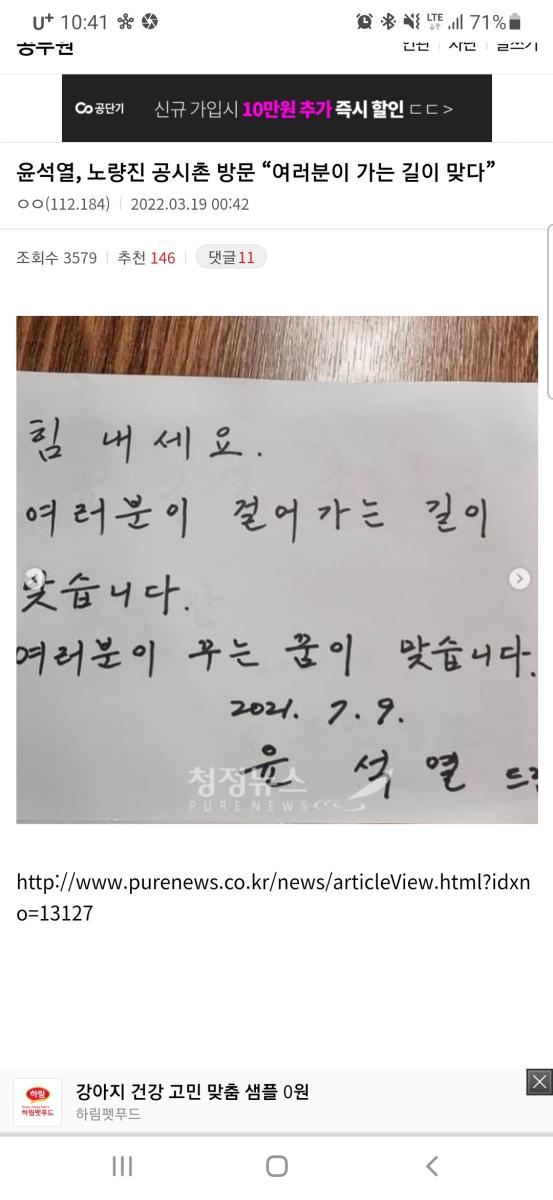 U+ 10:41 LTE 71%
공무원
신규 가입시 10만원 추가 즉시 할인 ㄷㄷ >
공단기
윤석열, 노량진 공시촌 방문 “여러분이 가는 길이 맞다”
ㅇㅇ(112.184) | 2022.03.19 00:42
조회수 3579 | 추천 146 | 댓글 11
힘 내세요.
여러분이 걸어가는 길이
맞습니다.
여러분이 꾸는 꿈이 맞습니다.
2021. 7. 9.
윤 석 열
청정뉴스
PURE NEWS
http://www.purenews.co.kr/news/articleView.html?idxn
o=13127
하림
하림펫푸드
강아지 건강 고민 맞춤 샘플 0원
하림펫푸드